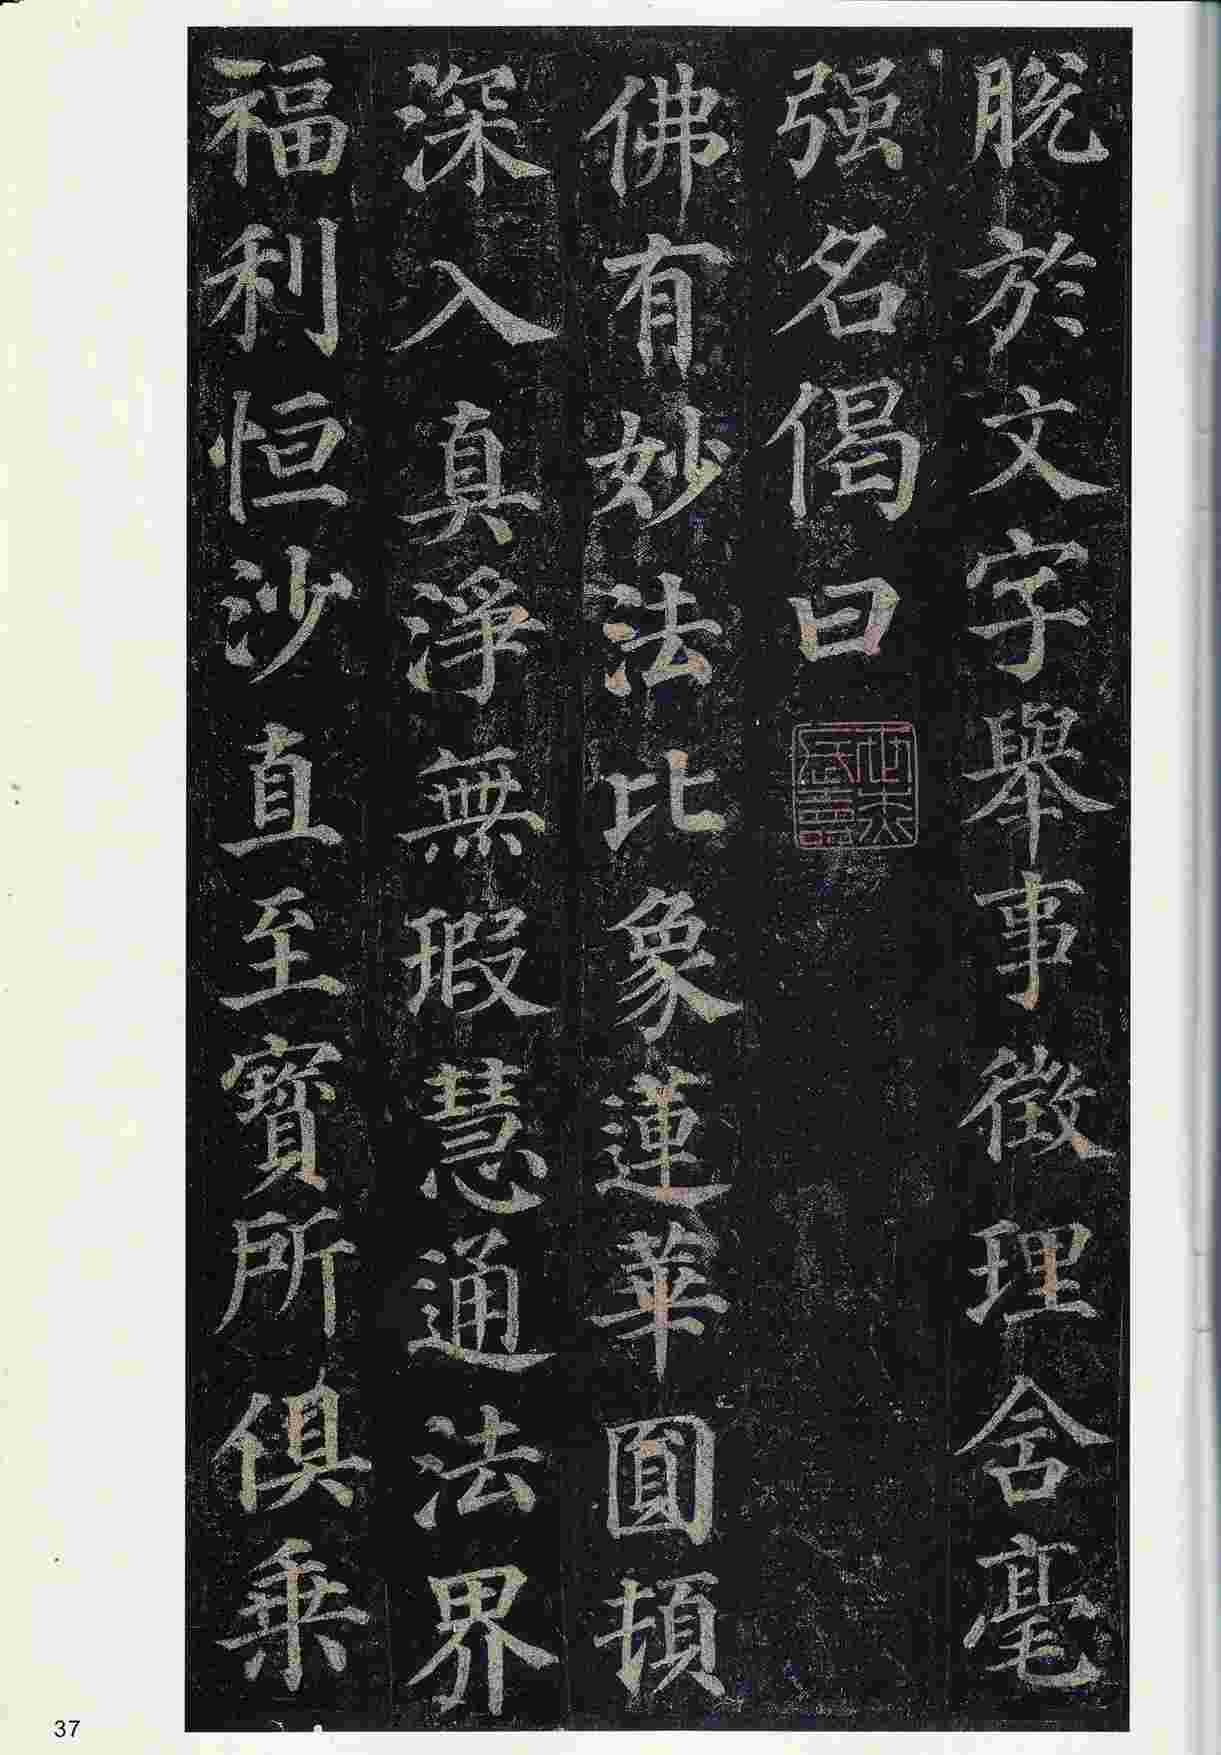 脱於文字舉事徵理含毫
强名偈曰
佛有妙法比象蓮華圓頓
深入真淨無瑕慧通法界
福利恒沙直至寶所俱乗
37